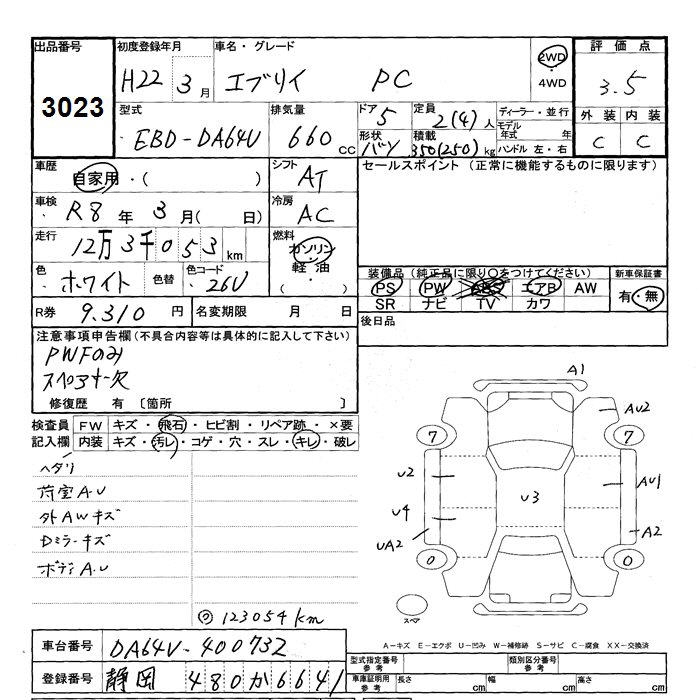 出品番号 初度登録年月 車名・グレード 2WD 4WD 評価点
3023 H22年 3月 エブリイ PC 3.5
型式 排気量 ドア 5 定員 2(4)人 ディーラー・並行 外装 内装
EBD-DA64V 660cc 形状 バン 積載 350(250)kg モデル年式 年 ハンドル 左・右 C C
車歴 自家用・( ) シフト AT セールスポイント (正常に機能するものに限ります)
車検 R8年 3月( 日) 冷房 AC
走行 12万3千053km 燃料 ガソリン・軽油・( )
色 ホワイト 色替 色コード 26U 装備品 (純正品に限り○をつけてください) 新車保証書
PS PW ABS エアB AW 有・無
SR ナビ TV カワ
R券 9.310円 名変期限 月 日 後日品
注意事項申告欄(不具合内容等は具体的に記入して下さい)
PWFのみ
スペアキー欠
修復歴 有 〔箇所 〕
検査員 FW キズ・飛石・ヒビ割・リペア跡・×要
記入欄 内装 キズ・汚レ・コゲ・穴・スレ・キレ・破レ
ヘタリ
荷室A・U
外AWキズ
Dミラーキズ
ボディA.U
123054km
A1
AU2
7 7
U2 AU1
U3
U4 A2
UA2
0 0
スペア
A−キズ E−エクボ U−凹み W−補修跡 S−サビ C−腐食 XX−交換済
車台番号 DA64V-400732 型式指定番号 参考 類別区分番号 参考
登録番号 静岡 480か6641 車庫証明用 参考 長さ cm 幅 cm 高さ cm